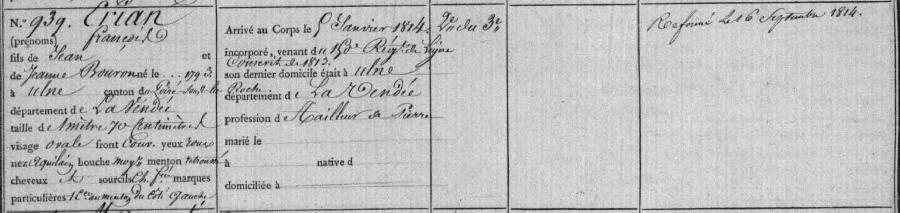 N.° 939. Crian
(prénoms) françois
fils de Jean et
de Jeanne Bouron né le . . . 1793.
à ulne canton du Poiré sous la Roche
département de La Vendée
taille de 1 mètre 70 centimètres
visage ovale front Cour. yeux roux
nez aquilain bouche moye menton retroussé
cheveux et sourcils Ch. marques
particulières 1 Cce au menton du Côté Gauche
Arrivé au Corps le 5 Janvier 1814.
incorporé, venant du Régt de Ligne
Conscrit de 1813.
son dernier domicile était à ulne
département de La Vendée
profession de Tailleur de Pierre
marié le
à native d
domiciliée à
2e du 3e
Reformé le 16 Septembre 1814.